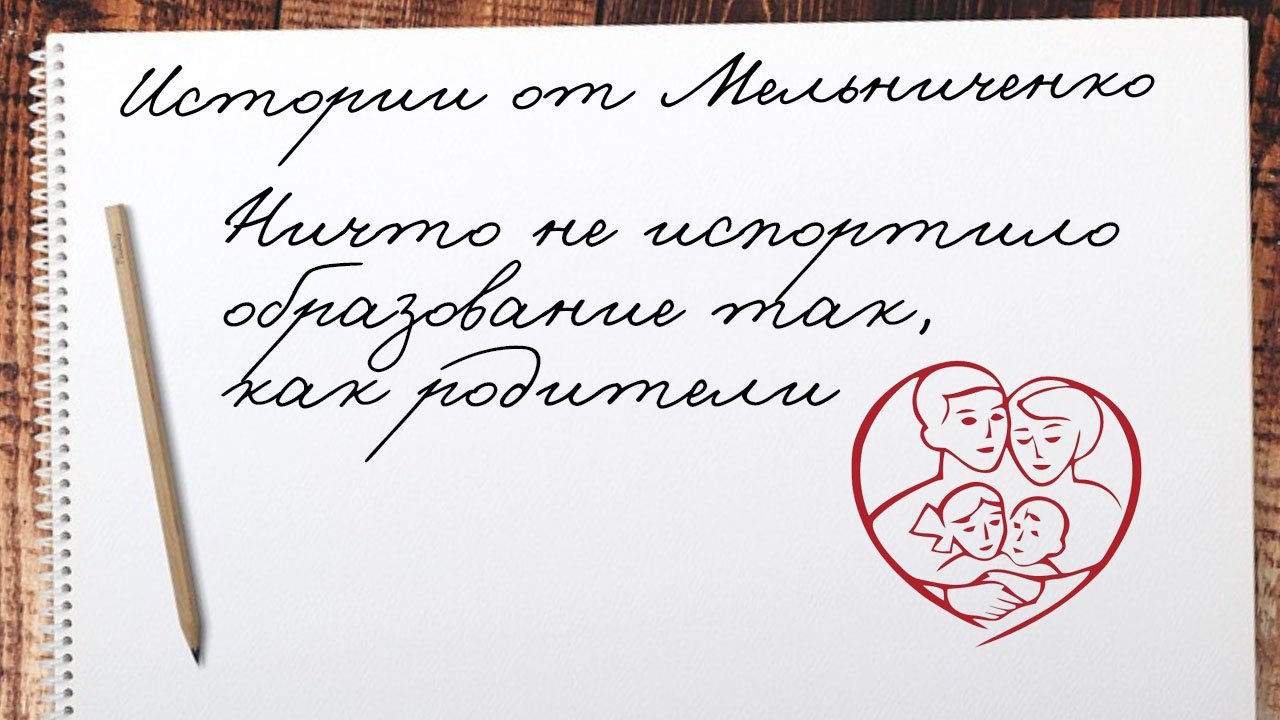 Истории от Мельниченко
Ничто не испортило
образование так,
как родители